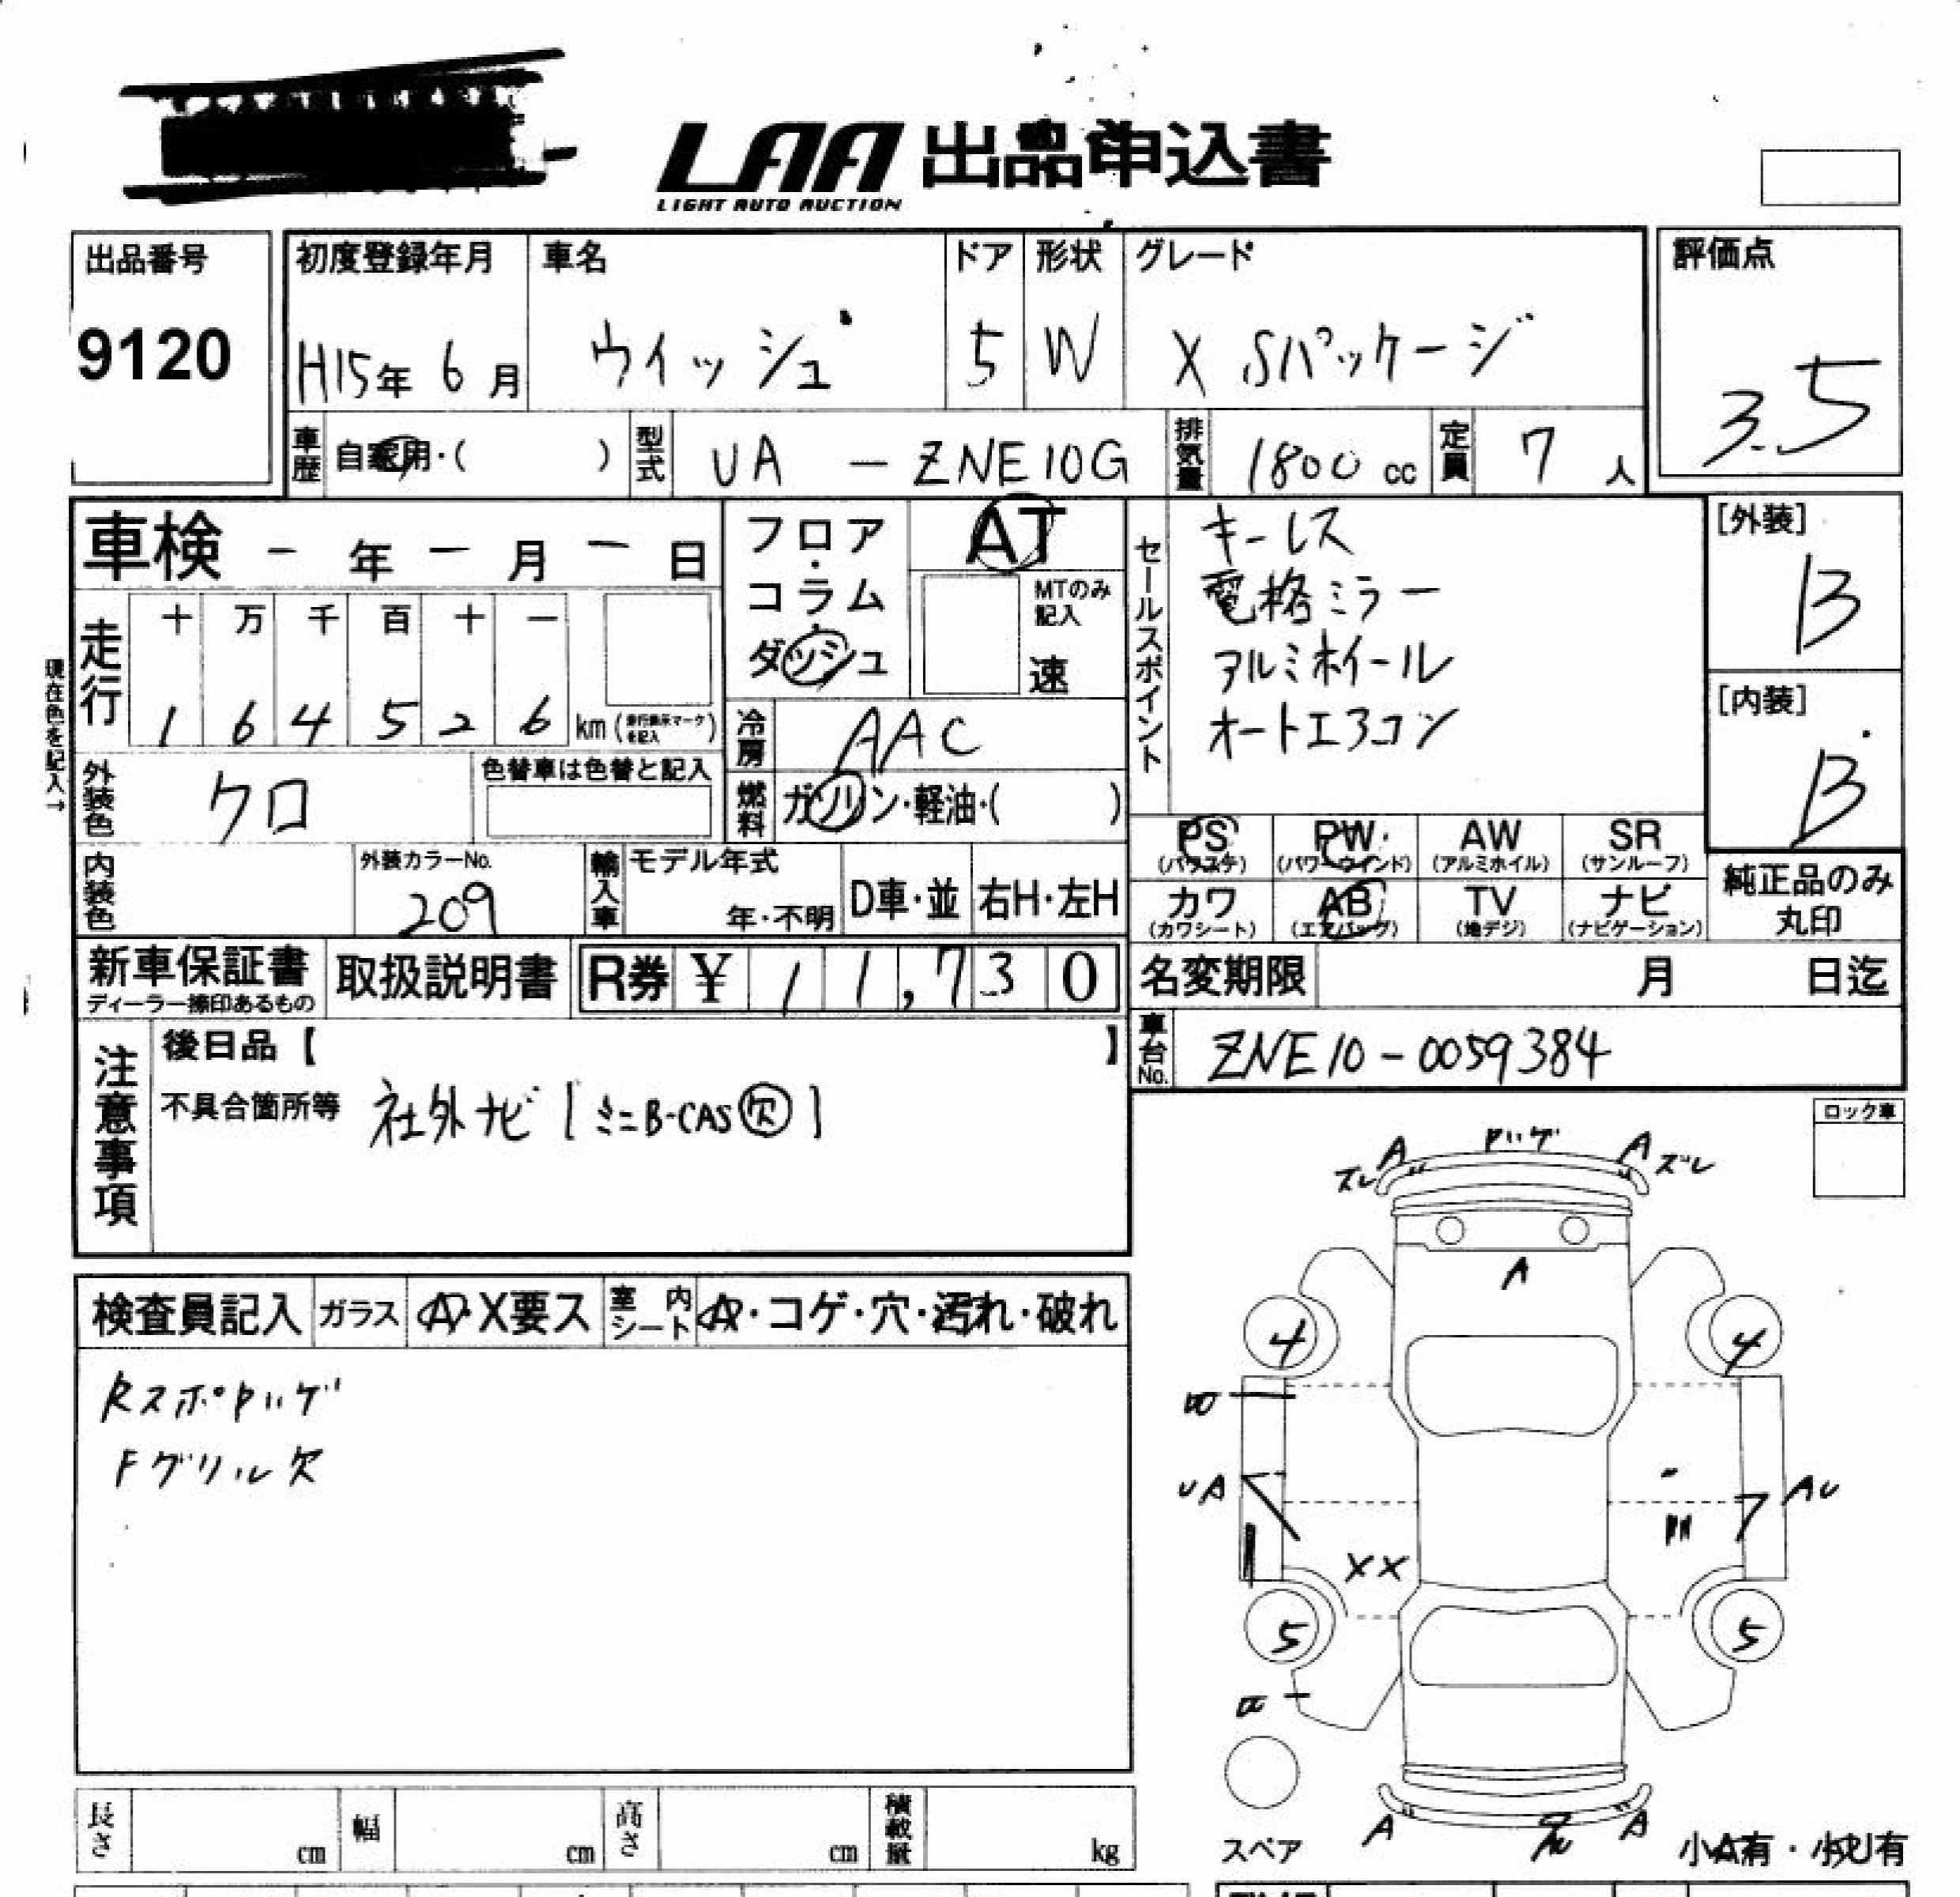 LAA 出品申込書
LIGHT AUTO AUCTION
出品番号 9120
初度登録年月 H15年 6月
車名 ウィッシュ
ドア 5
形状 W
グレード X Sパッケージ
評価点 3.5
車歴 自家用・( )
型式 UA - ZNE10G
排気量 1800 cc
定員 7 人
車検 - 年 - 月 - 日
フロア・コラム・ダッシュ
AT
MTのみ記入
速
セールスポイント
キーレス
電格ミラー
アルミホイール
オートエアコン
[外装] B
[内装] B
現在色を記入→
走行
十 万 千 百 十 一
1 6 4 5 2 6 km
冷房 AAC
外装色 クロ
色替車は色替と記入
燃料 ガソリン・軽油・( )
PS (パワステ)
PW (パワーウインド)
AW (アルミホイル)
SR (サンルーフ)
カワ (カワシート)
AB (エアバッグ)
TV (地デジ)
ナビ (ナビゲーション)
純正品のみ丸印
内装色
外装カラーNo. 209
輸入車
モデル年式 年・不明
D車・並
右H・左H
新車保証書
ディーラー捺印あるもの
取扱説明書
R券 ¥ 11,730
名変期限 月 日迄
車台No. ZNE10-0059384
注意事項
後日品【 】
不具合箇所等 社外ナビ [ミニB-CAS欠]
ロック車
検査員記入
ガラス A・X要ス
室内シート A・コゲ・穴・汚れ・破れ
Rスポ
Fグリル欠
ズレ A A ズレ
A
4 4
UA AU
XX
5 5
A A
スペア
小A有・小U有
長さ cm
幅 cm
高さ cm
積載量 kg